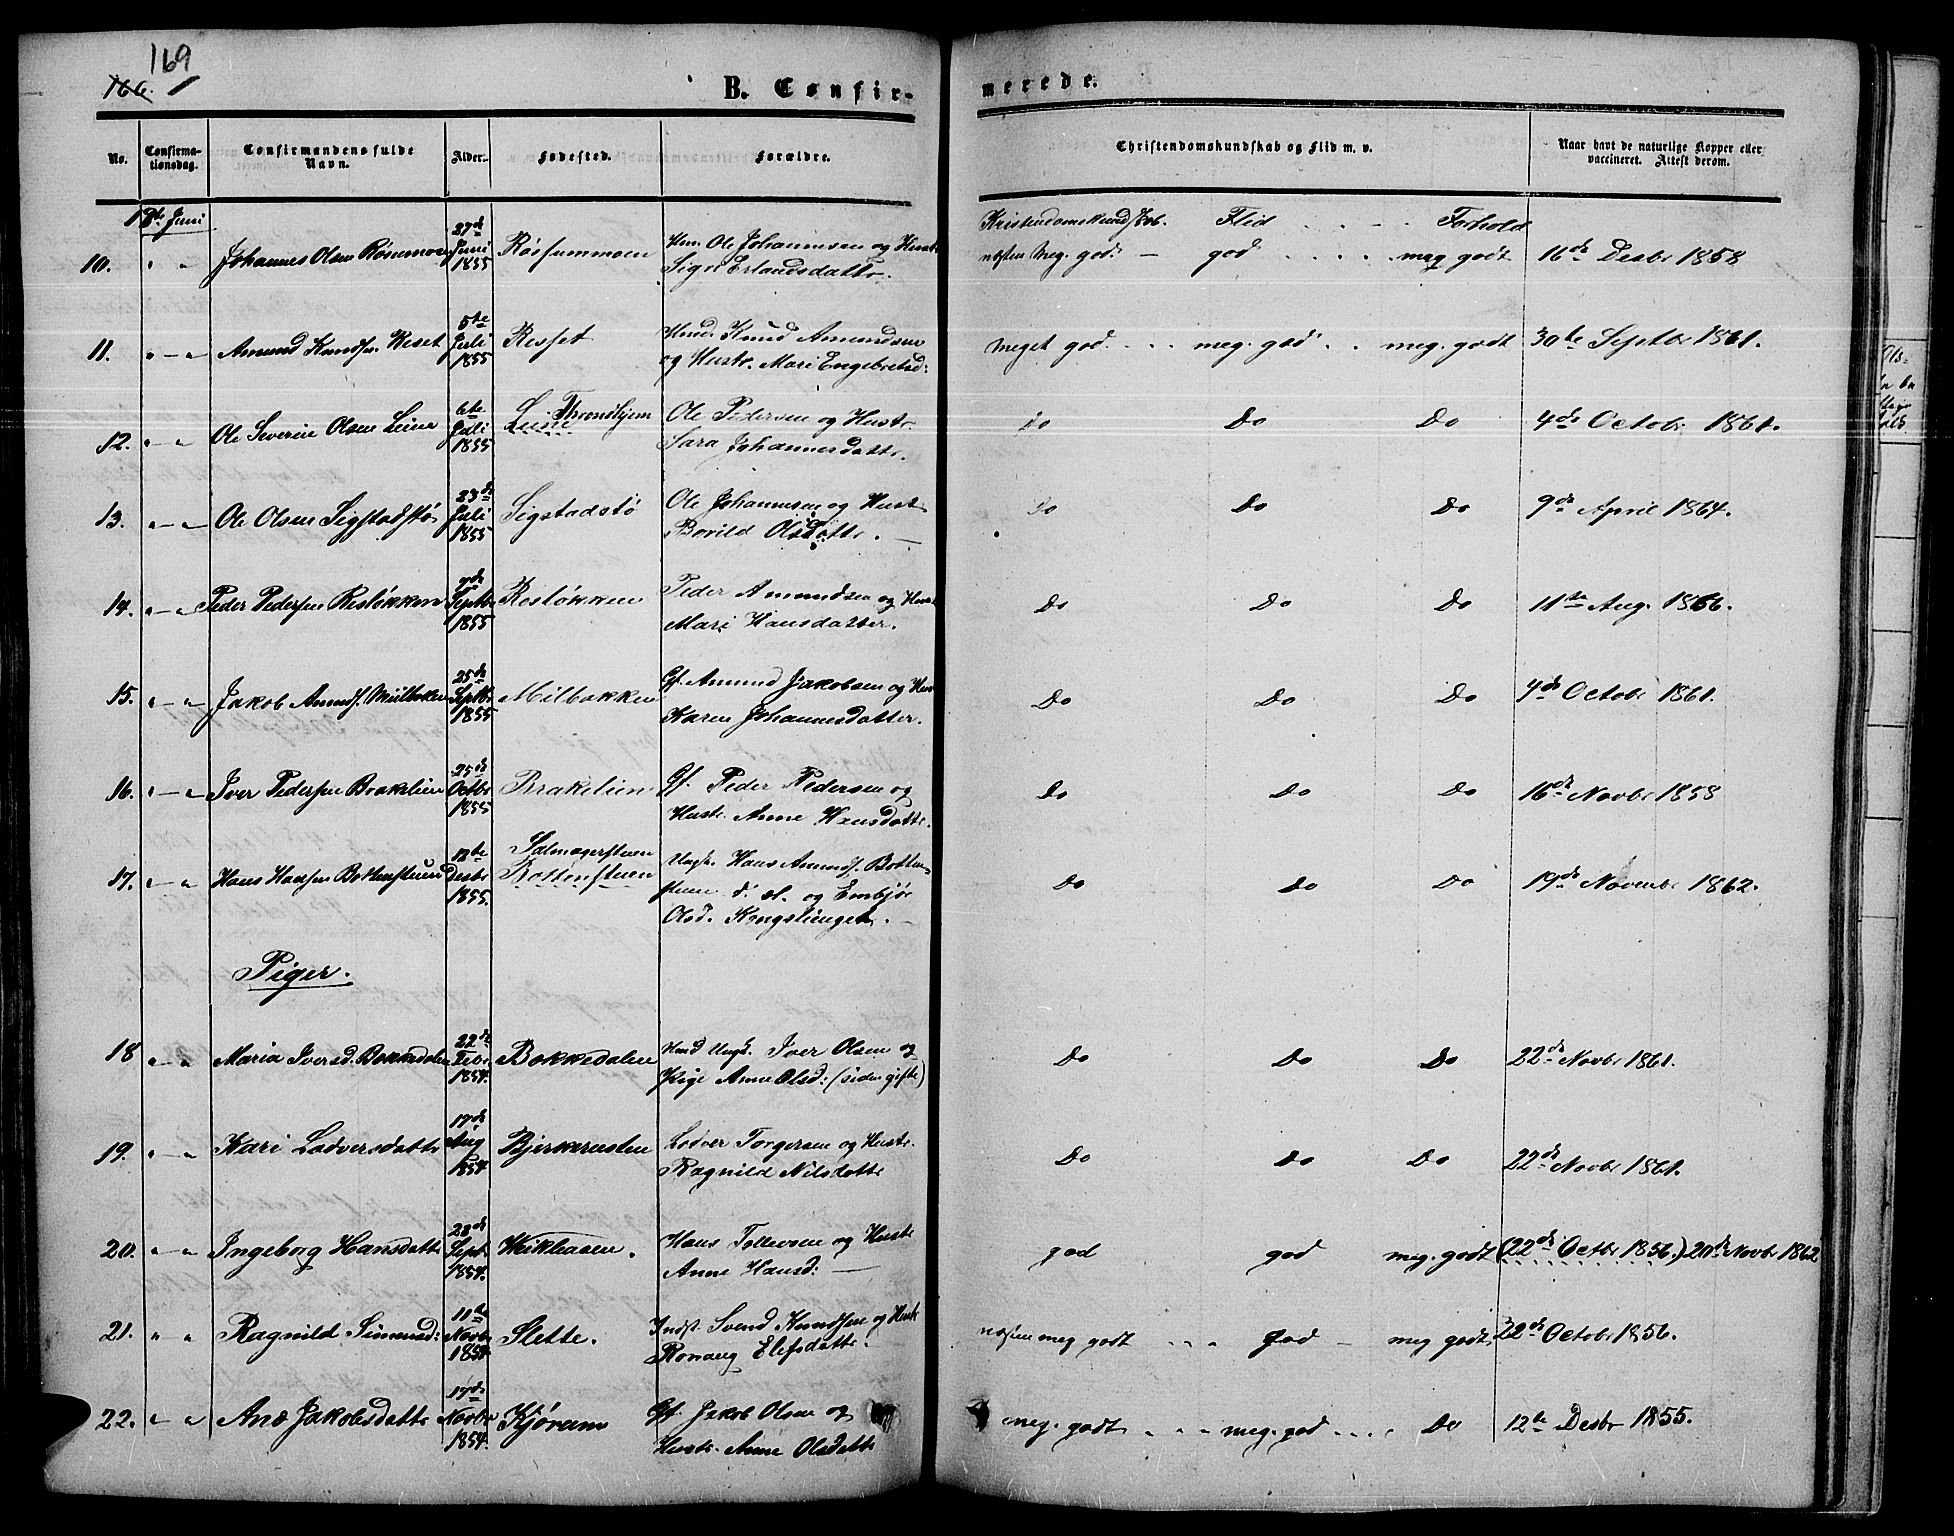 169
166.
B. Confir-
merede.
No.
Confirma-
tionsdag.
Confirmandens fulde
Navn.
Alder.
Fødested.
Forældre.
Christendomskundskab og Flid m. v.
Naar havt de naturlige Kopper eller
vaccineret. Attest derom.
18de Juni
Kristendomskundskab. Flid Forhold
10. Johannes Olsen Rønnmoen 27de Juni 1855
Hm. Ole Johannesen og Hustr.
Sigri Erlandsdatter.
næsten meg. god. god meg godt 16de Desbr 1858
11. Amund Knudsn. Reset 5te Juli 1855 Resset
Husd. Knud Amundsen
og Hustr. Mari Engebretsd:
meget god. meg. god meg. godt 30te Septbr 1861.
12. Ole Severin Olsen Leine 6te Juli 1855 Throndhjem
Leine
Ole Pedersen og Hustr.
Sara Johannesdattr.
Do Do Do 4de Octobr 1861.
13. Ole Olsen Sigstadstø 23de Juli 1855 Sigstadstø
Ole Johannesen og Hustr
Borild Olsdattr.
Do Do Do 9de April 1864.
14. Peder Pedersen Resløkken 7de Septbr 1855 Resløkken
Peder Amundsen og Hustr
Mari Hansdatter.
Do Do Do 11te Aug. 1866.
15. Jakob Amunds. Milbakken 25de Septbr 1855 Milbakken
Gf. Amund Jakobsen og Hustr
Karen Johannesdatter.
Do Do Do 4de Octobr 1861.
16. Iver Pedersen Brakelien 25de Octbr 1855 Brakelien
Gf. Peder Pedersen og
Hustr. Anne Hansdattr.
Do Do Do 16de Novbr 1858
17. Hans Hansen Bottenstuen Desbr 1855. Salmagerstuen
Bottenstuen
Ungk. Hans Amunds. Botten-
stuen d. æl. og Embjør
Olsd.
Do Do Do 19de Novembr 1862.
Piger.
18 Maria Iversd. Bakkedalen 22de Febr. 1854. Bakkedalen
Ungk. Iver Olsen og
Pige Anne Olsd: (siden gifte)
Do Do Do 22de Novbr 1861.
19. Kari Lodversdattr 17de Aug 1854. Bjerkerusten
Lodver Torgersen og Hustr.
Ragnild Nilsdattr
Do Do Do 22de Novbr 1861.
20. Ingeborg Hansdattr 28de Sept 1854. Wikhaugen.
Hans Tollevsen og Hustr
Anne Hansd:
god god meg. godt (22de Octbr 1856.) 20de Novbr 1862
21. Ragnild Simund: 11te Novbr 1854 Slette.
Indst. Svend Knudsen og Hustr
Ronaug Elefsdattr.
næsten meg godt god meg godt, 22de Octobr 1856.
22. Ane Jakobsdattr 17de Novbr 1854. Kjøraas
Gf. Jakob Olsen og
Hustr. Anne Olsdattr
meg. godt meg. god Do 12te Desbr 1855.